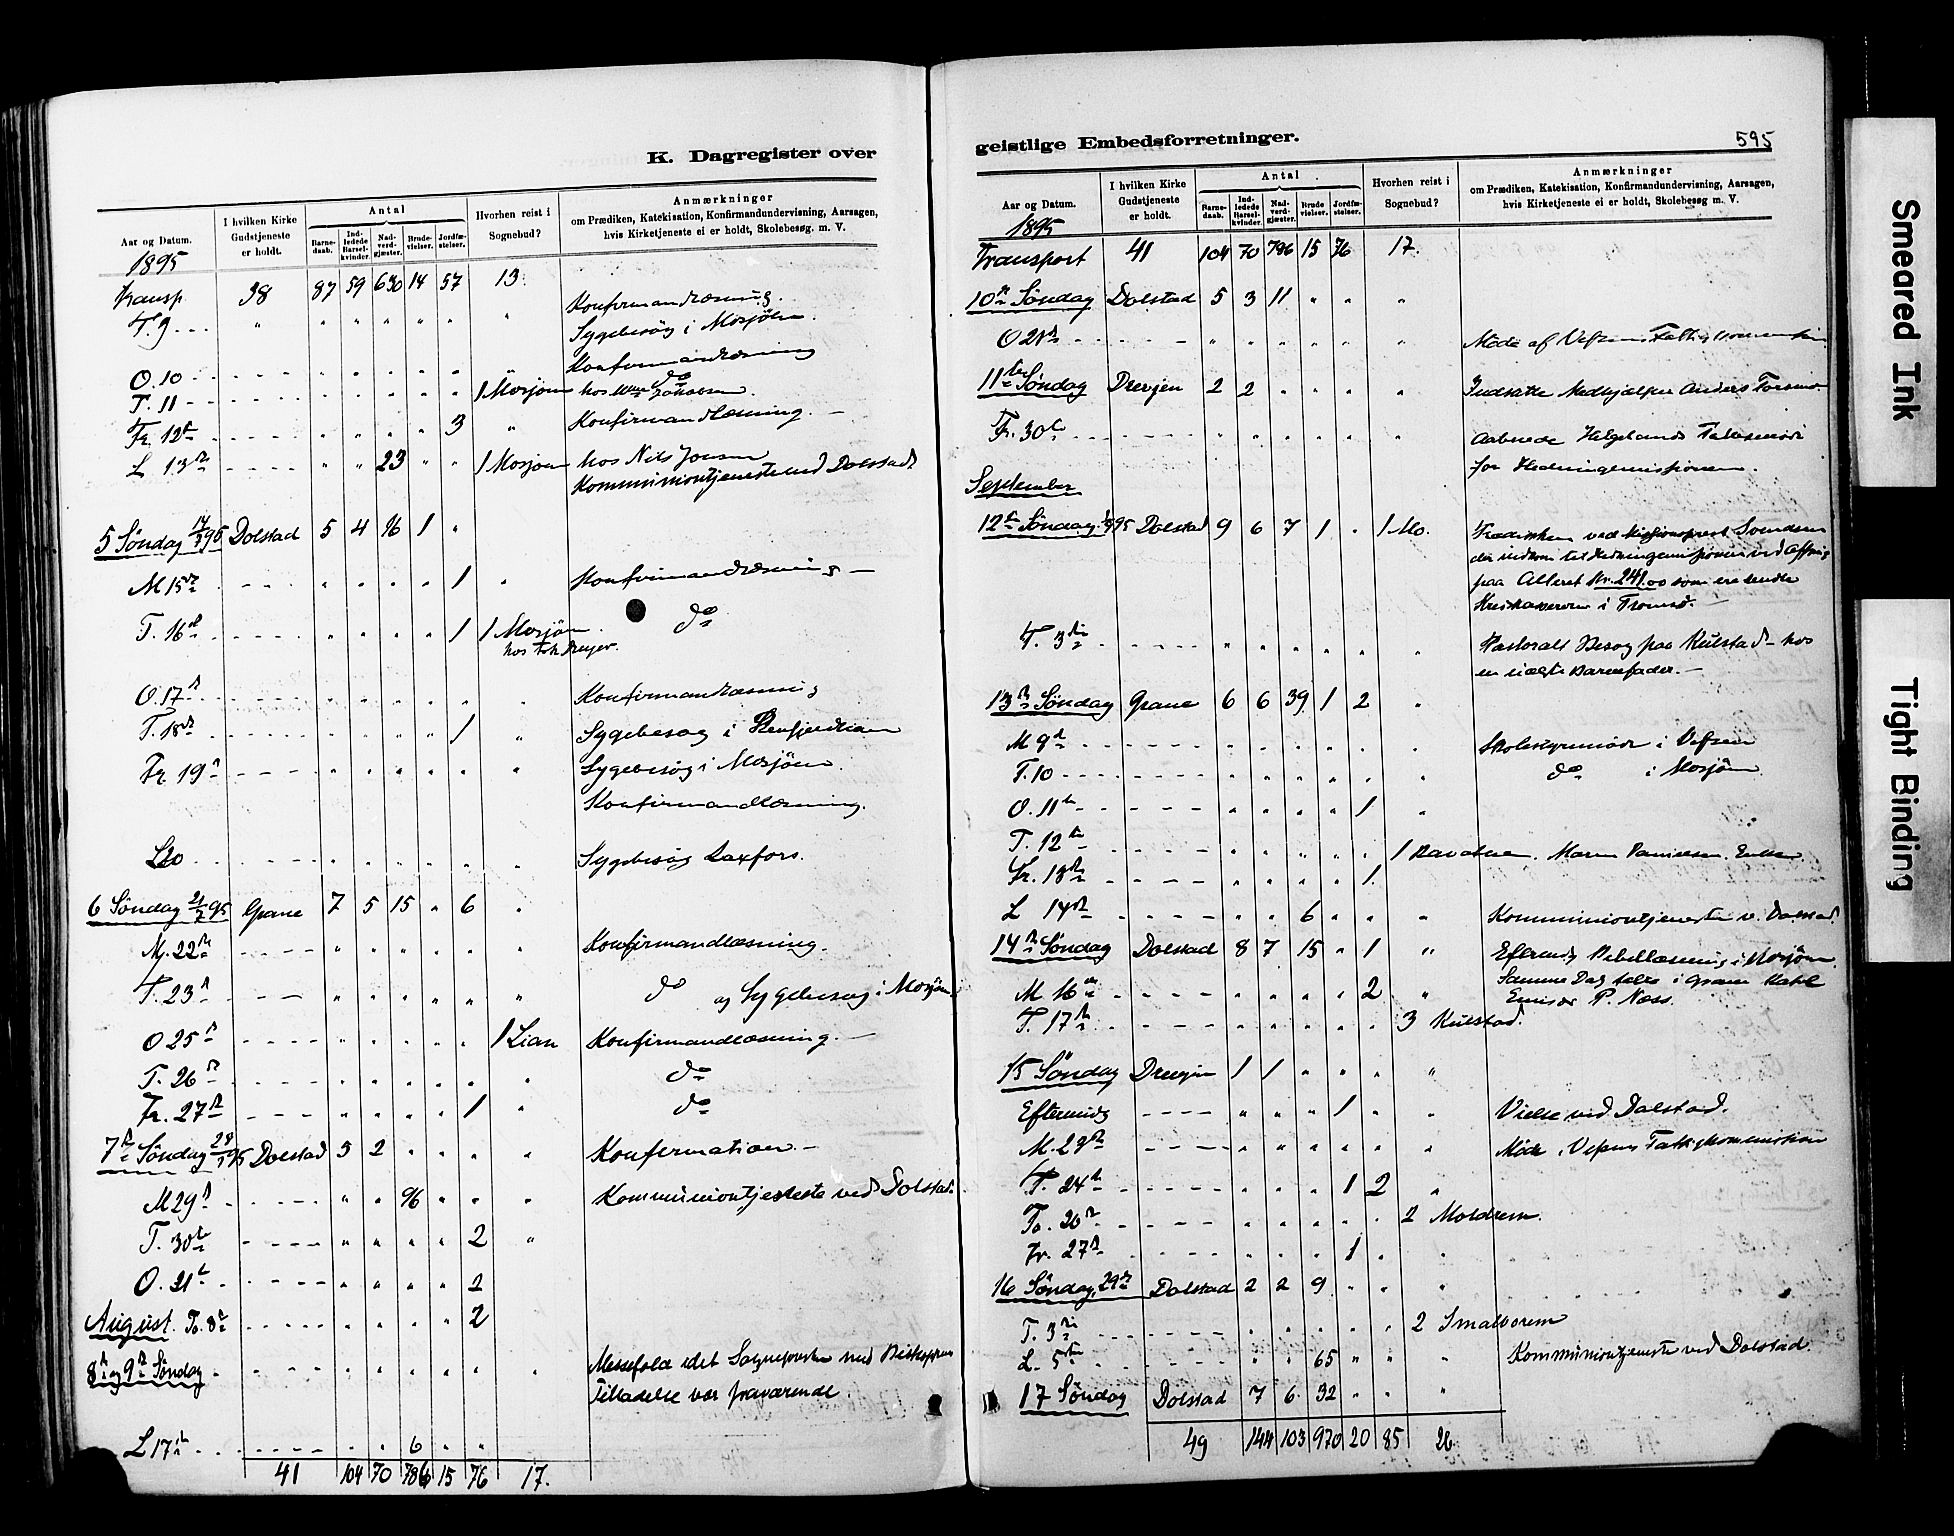 K. Dagregister over
Aar og Datum.
1895
I hvilken Kirke Gudstjeneste er holdt.
Antal
Barne-daab.
Ind-ledede Barsel-kvinder.
Nad-verd-gjæster.
Brude-vielser.
Jordfæ-stelser.
Hvorhen reist i Sognebud?
Anmærkninger
om Prædiken, Katekisation, Konfirmandundervisning, Aarsagen,
hvis Kirketjeneste ei er holdt, Skolebesøg. m. V.
Transp. 38 87 59 630 14 57 13.
T. 9 Konfirmandlæsning.
Sygebesøg i Mosjøen.
O. 10 Konfirmandlæsning
T. 11 1 Mosjøen do
Fr. 12te 3 Konfirmandlæsning.
L 13de 23 1 Mosjøen hos Nils Jensen
Kommuniontjeneste ved Dolstad
5 Søndag 14/7 95 Dolstad 5 4 16 1
M 15de 1 Konfirmandlæsning
T. 16de 1 1 Mosjøen do
O. 17de Konfirmandlæsning
T. 18de 1 Sygebesøg i
Fr 19de Sygebesøg i Mosjøen
Konfirmandlæsning.
L 20 Sygebesøg Laxfors.
6 Søndag 21/7 95 Grane 7 5 15 " 6
M. 22de Konfirmandlæsning.
T. 23de do og Sygebesøg i Mosjøen
O 25de 1 Lian Konfirmandlæsning.
T. 26de do
Fr. 27de 1 do
7de Søndag 28/7 95 Dolstad 5 2 Konfirmation.
M 29de 96 Kommuniontjeneste ved Dolstad.
T. 30te 2
O. 31te 2
August. To. 8de 2
8de og 9de Søndag Messefald idet Sognepresten med Biskoppens
Tilladelse var fraværende.
L 17de 6
41 104 70 786 15 76 17.
geistlige Embedsforretninger.
595
Aar og Datum.
1895
I hvilken Kirke Gudstjeneste er holdt.
Antal
Barne-daab.
Ind-ledede Barsel-kvinder.
Nad-verd-gjæster.
Brude vielser.
Jordfæ-stelser.
Hvorhen reist i Sognebud?
Anmærkninger
om Prædiken, Katekisation, Konfirmandundervisning, Aarsagen,
hvis Kirketjeneste ei er holdt, Skolebesøg m. V.
Transport 41 104 70 786 15 76 17.
10de Søndag Dolstad 5 3 11
O 21de Møde af Vefsens Fattigkommission
11te Søndag Drevjen 2 2 Indsatte Medhjælper Anders
Fr. 30te Aabnede Helgelands
for Hedningemissionen.
September
12te Søndag 1/9 95 Dolstad 9 6 7 1 " 1 Mo. Prædiken ved Missionsprest Svendsen
der indkom til Hedningemissionen ved Offring
paa Alteret Kr. 241.00 som ere sendte
Kredskassereren i Tromsø.
T. 3die Pastoralt Besøg paa Kulstad hos
en uægte Barnefader.
13de Søndag Grane 6 6 39 1 2
M 9de Skolestyremøde i Vefsen
T. 10 do i Mosjøen.
O. 11te 1
T. 12te 1
Fr. 13de 1
L 14de 6 Kommuniontjeneste v. Dolstad
14de Søndag Dolstad 8 7 15 " 1 Eftermidg Bibellæsning i Mosjøen.
Samme Dag talte i Grane
Emissær P. Næss.
M 16de 2
T. 17de 3 Kulstad.
15 Søndag Drevjen 1 1
Eftermidg 1 Vielse ved Dolstad.
M. 23de Møde i Vefsens Fattigkommission
T. 24de 1 2
To. 26de 2 Moldrem.
Fr. 27de 1
16 Søndag 29de Dolstad 2 2 9
T. 3die 2
L. 5te 65 Kommuniontjeneste ved Dolstad
17 Søndag Dolstad 7 6 32
49 144 103 970 20 85 26
Smeared Ink
Tight Binding